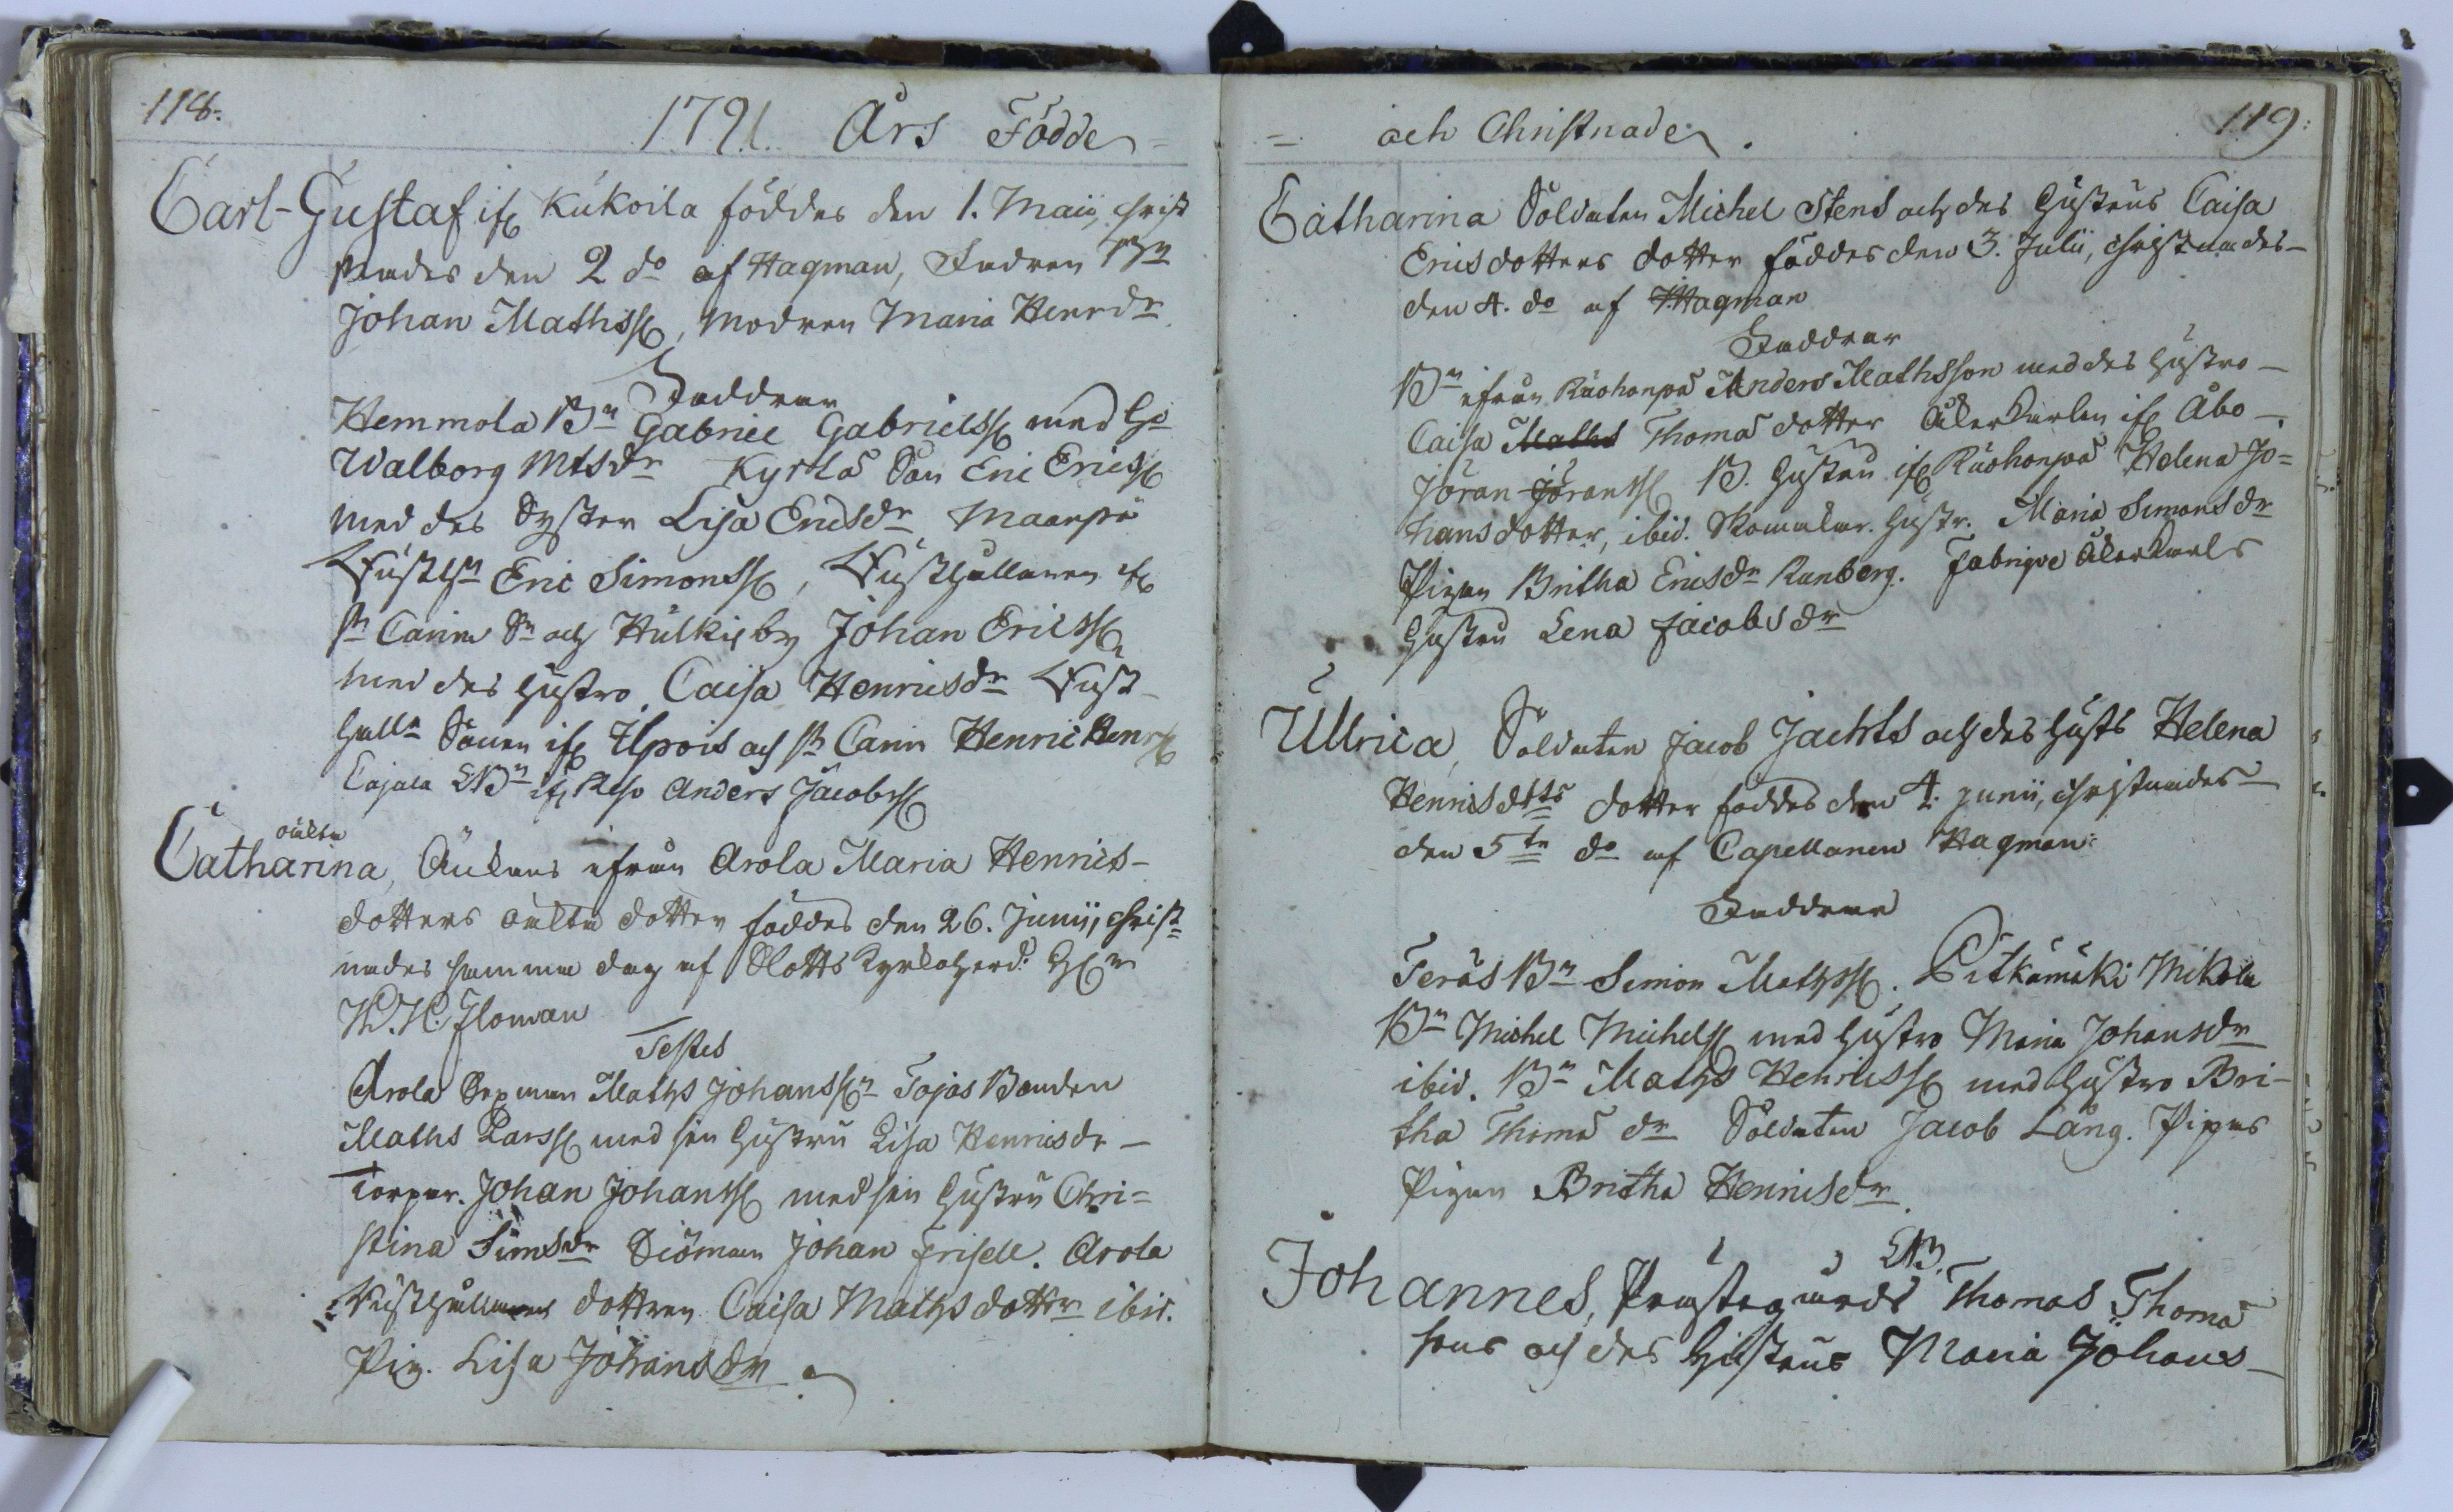 118.
1791. Års Födde =
Carl-Gustaf ifr Kukoila föddes den 1. Maii, Christ
nades den 2 do af Hagman, Fadren Bn
Johan Mathss, Modren Maria Henrdr
Faddrar
Hemmola Bn Gabriel Gabrielss med Ho
Walborg Mtsdr Kyrlä Son Eric Ericss
med des Syster Lisa Ericsdr Maanpä
Rusthn Eric Simonss, Rusthållaren
St Carin Sn och Hulkisby Johan Ericss
med des hustro Caisa Henricsdr Rust-
hålln Sonen ifr Ilpois och St Carin Henric Henrss
Cajala Bn ifr Reso Anders Jacobss
oäkta
Catharina, Änkans ifrån Arola Maria Henrics-
dotters oäkta dotter föddes den 26. Junii, Christ=
nades samma dag af Slotts Kyrkoherd. Hn
W. H. Floman
Testes
Arola Sexman Maths Johanssn Tojas Bonden
Maths Larss med sin hustru Lisa Henricsdr –
Torpar. Johan Johanss med sin hustru Chri=
stina Simsdr Siöman Johan Frisell. Arola
Rusthållarens dottren Caisa Mathsdottr ibid.
Pig. Lisa Johansdr
= och Christnade.
119.
Catharina Soldaten Michel Stens och des hustrus Caisa
Ericsdotters dotter föddes den 3. Julii, Christnades –
den 4. do af Hagman
Faddrar
Bn ifrån Ruohonpä Anders Mathsson med des hustro –
Caisa Maths Thomä dotter Åkerkarlen ifr Åbo –
Jöran Jöranss B. hustru ifr Ruohonpä Helena Jo=
hansdotter, ibid. Skomakar. hustr. Maria Simonsdr
Pigan Britha Ericsdr Ranberg. Fabriqve Åkerkarls
hustru Lena Jacobsdr
Ullrica, Soldaten Jacob Jachts och des husts Helena
Henricsdtts dotter föddes den 4. Junii, Christnades –
den 5te do af Capellanen Hagman.
Faddrar
Teräs Bn Simon Mathss. Pitkämäki Mikola
Bn Michel Michelss med hustro Maria Johansdr
ibid. Bn Maths Henricss med hustro Bri-
tha Thomä dr Soldaten Jacob Lång. Pipas
Pigan Britha Henricsdr
Johannes, Prästegårds Thomas Thomä
sons och des hustrus Maria Johans –